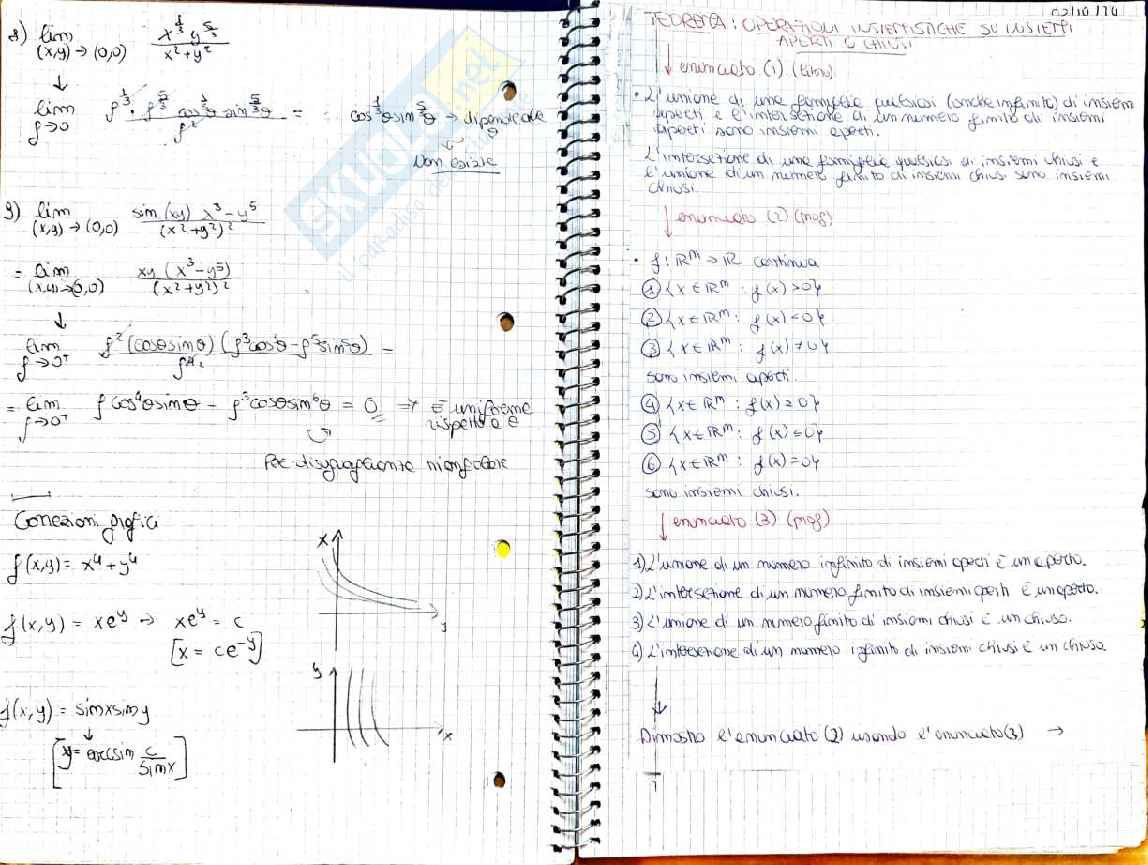 8) lim x^{1/3} y^{5/3} / x²+y²
(x,y) → (0,0)
↓
lim ρ^{1/3} · ρ^{5/3} cos^{1/3}θ sin^{5/3}θ / ρ² = cos^{1/3}θ sin^{5/3}θ → dipende da
ρ→0 θ
Non esiste
9) lim sin(xy) x³-y⁵ / (x²+y²)²
(x,y) → (0,0)
= lim xy (x³-y⁵) / (x²+y²)²
(x,y)→(0,0)
↓
lim ρ²(cosθsinθ)(ρ³cos³θ-ρ⁵sin⁵θ) / ρ⁴ =
ρ→0⁺
= lim ρcos⁴θsinθ - ρ³cosθsin⁶θ = 0 ⇒ È uniforme
ρ→0⁺ rispetto a θ
Per disuguaglianza triangolare
Correzioni grafici
f(x,y) = x⁴+y⁴
x
y
f(x,y) = xe^y → xe^y = c
[x = ce^{-y}]
y
x
f(x,y) = sinxsiny
↓
[y = arcsin c/sinx]
SKUOLA.net
il paradiso de
02/10/14
TEOREMA: OPERAZIONI INSIEMISTICHE SU INSIEMI
APERTI O CHIUSI
↓ enunciato (1) (libro)
• L'unione di una famiglia qualsiasi (anche infinito) di insiemi
aperti e l'intersezione di un numero finito di insiemi
aperti sono insiemi aperti.
L'intersezione di una famiglia qualsiasi di insiemi chiusi e
l'unione di un numero finito di insiemi chiusi sono insiemi
chiusi.
↓ enunciato (2) (prof)
• f: ℝᵐ → ℝ continua
① {x ∈ ℝᵐ : f(x) > 0}
② {x ∈ ℝᵐ : f(x) < 0}
③ {x ∈ ℝᵐ : f(x) ≠ 0}
sono insiemi aperti.
④ {x ∈ ℝᵐ : f(x) ≥ 0}
⑤ {x ∈ ℝᵐ : f(x) ≤ 0}
⑥ {x ∈ ℝᵐ : f(x) = 0}
sono insiemi chiusi.
↓ enunciato (3) (prof)
1) L'unione di un numero infinito di insiemi aperti è un aperto.
2) L'intersezione di un numero finito di insiemi aperti è un aperto.
3) L'unione di un numero finito di insiemi chiusi è un chiuso.
4) L'intersezione di un numero infinito di insiemi chiusi è un chiuso
↓
Dimostro l'enunciato (2) usando l'enunciato (3) →